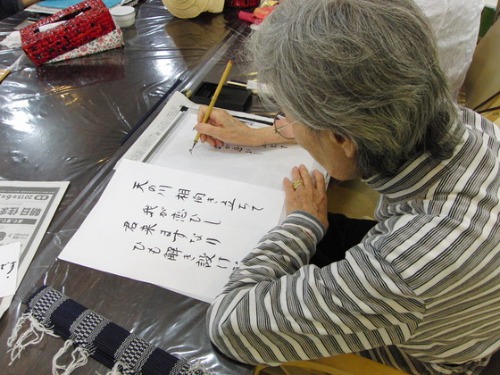 天の川 相向き立ちて
我が恋ひし
君来ますなり
ひも解き設け